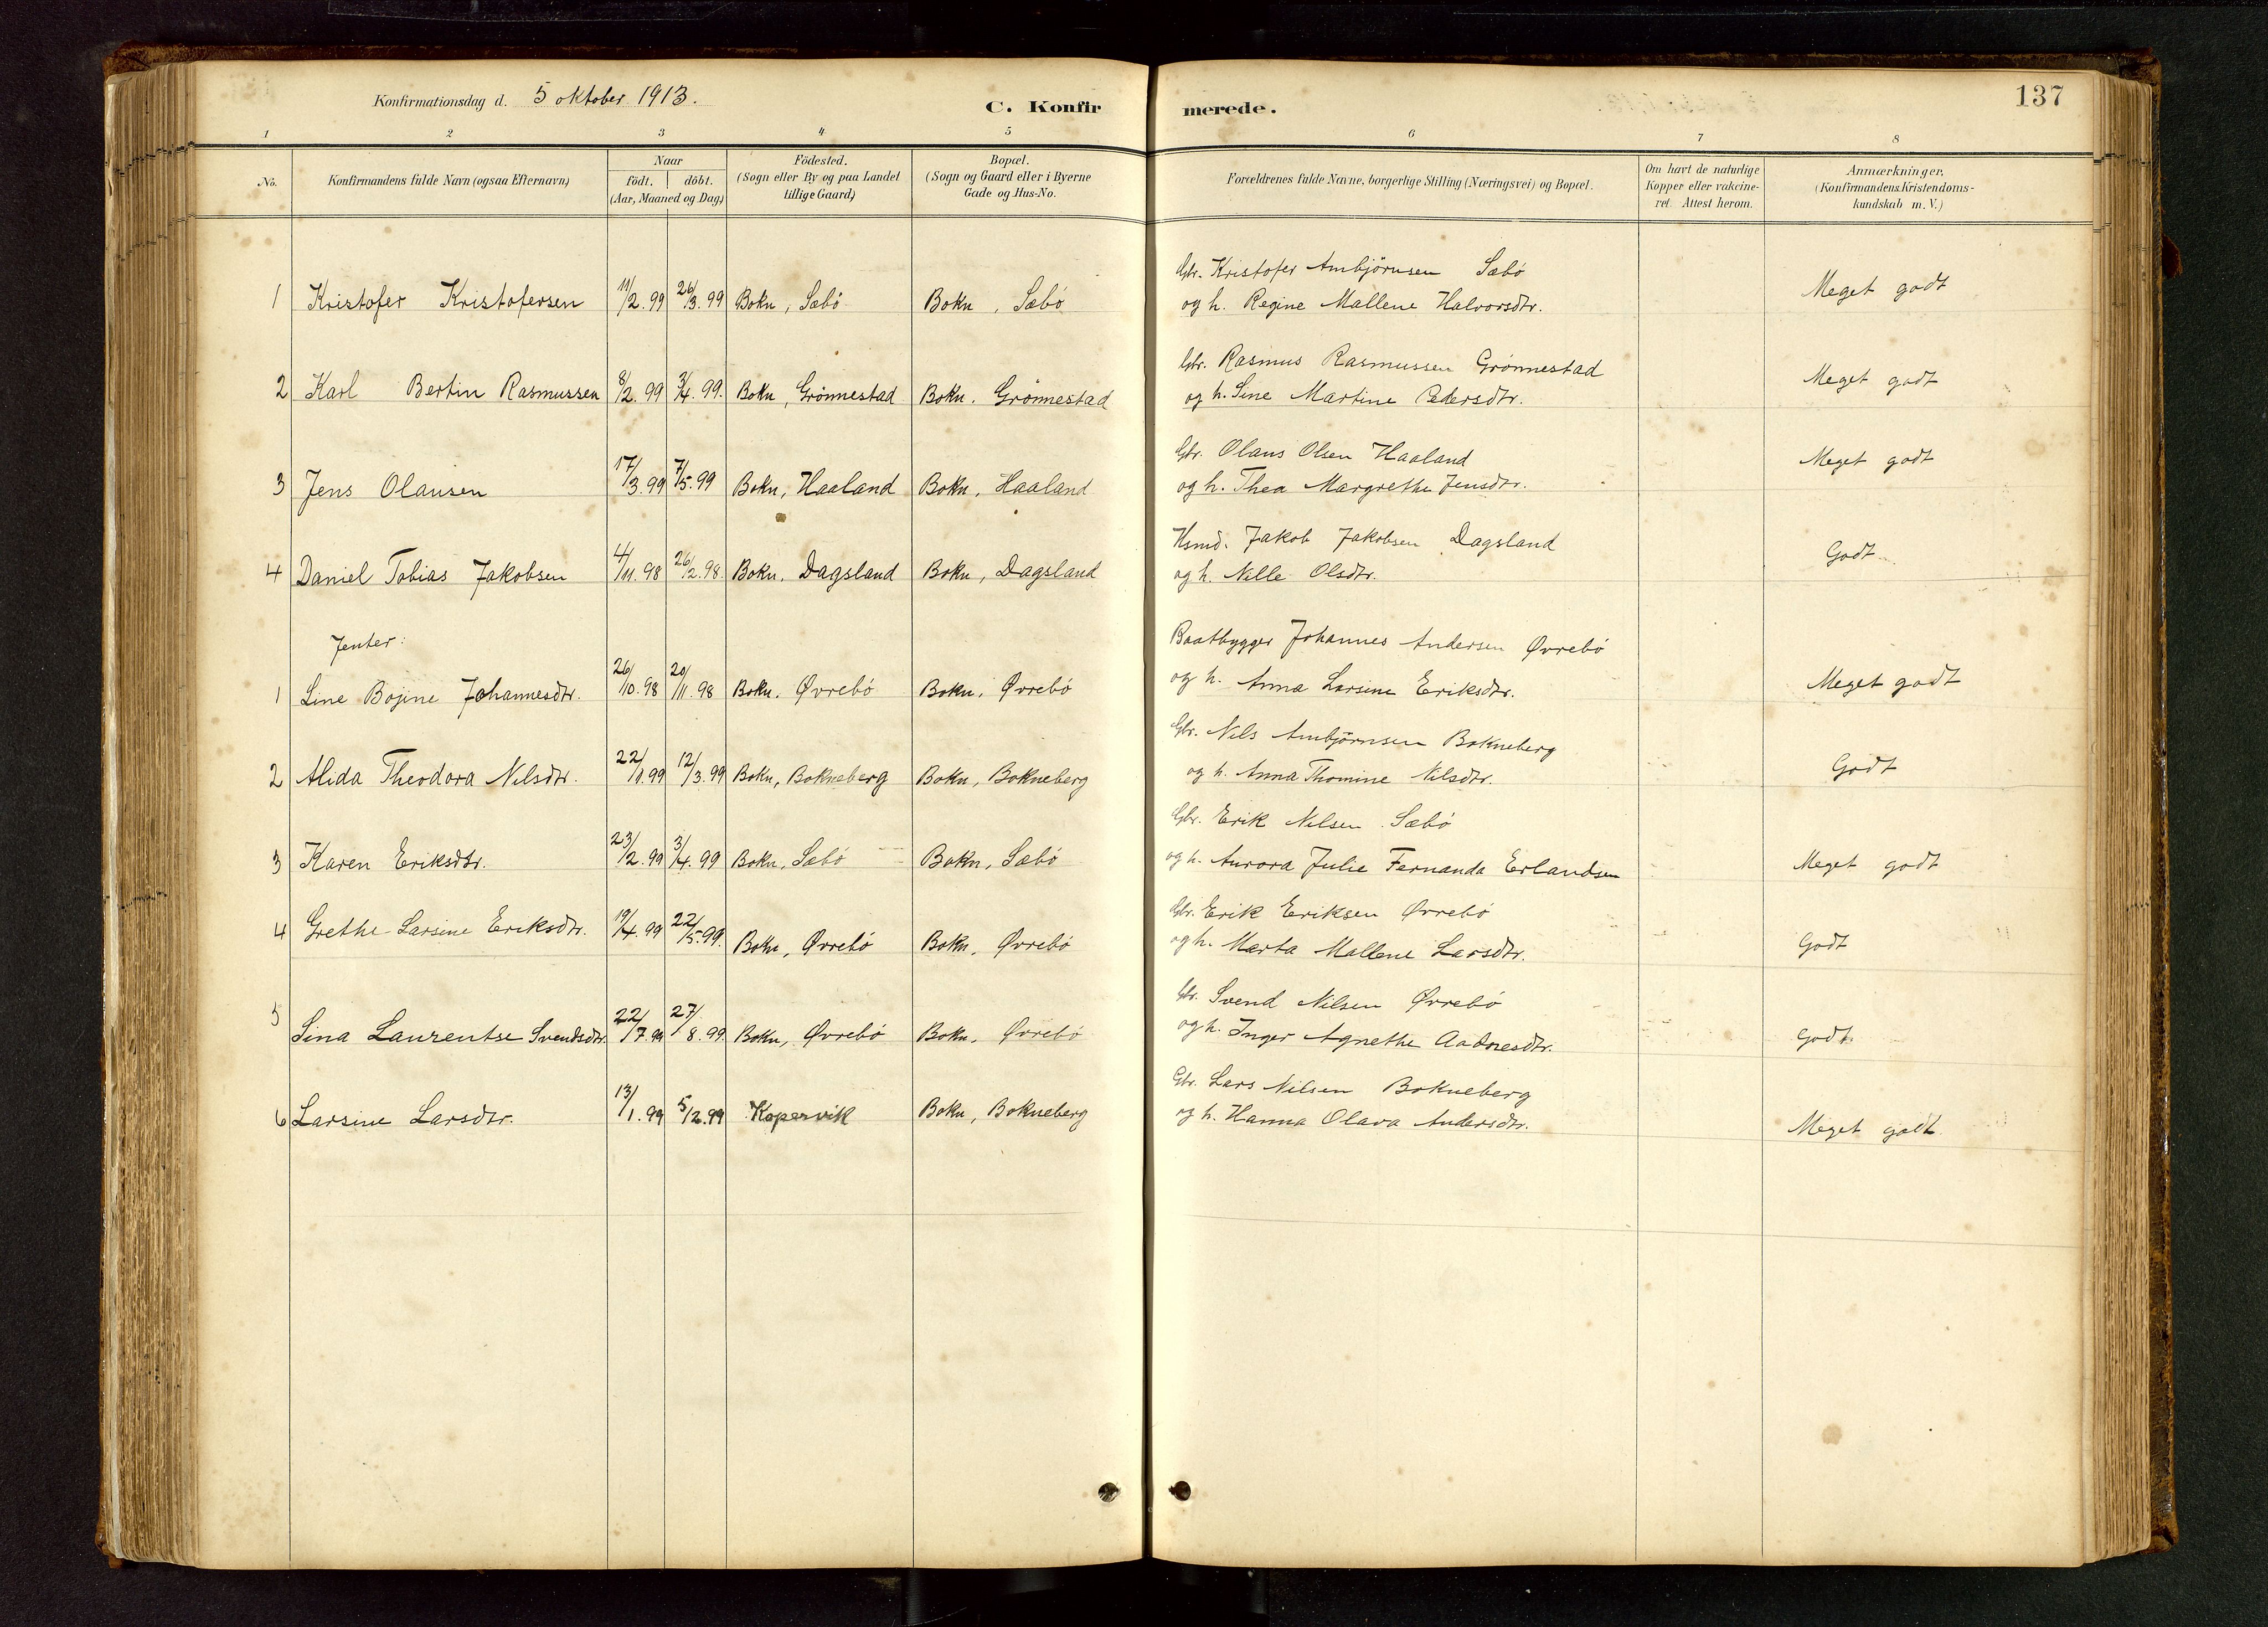 Konfirmationsdag d. 5 oktober 1913.
C. Konfirmerede.
137
1 2 3 4 5 6 7 8
No.
Konfirmandens fulde Navn (ogsaa Efternavn)
Naar
födt. döbt.
(Aar, Maaned og Dag)
Födested.
(Sogn eller By og paa Landet
tillige Gaard)
Bopæl.
(Sogn og Gaard eller i Byerne
Gade og Hus-No.
Forældrenes fulde Navne, borgerlige Stilling (Næringsvei) og Bopæl.
Om havt de naturlige
Kopper eller vakcine-
ret. Attest herom.
Anmærkninger.
(Konfirmandens Kristendoms-
kundskab m. V.)
1 Kristofer Kristofersen 11/2.99 26/3.99 Bokn, Sæbö Bokn, Sæbö
Gbr. Kristofer Ambjörnsen Sæbö
og h. Regine Mallene Halvorsdtr.
Meget godt
2 Karl Bertin Rasmussen 8/2.99 3/4.99. Bokn, Grönnestad Bokn. Grönnestad
Gbr. Rasmus Rasmussen Grönnestad
og h. Sine Martine Pedersdtr.
Meget godt
3 Jens Olausen 17/3.99 7/5.99 Bokn, Haaland Bokn, Haaland
Gbr. Olaus Olsen Haaland
og h. Thea Margrethe Jensdtr.
Meget godt
4 Daniel Tobias Jakobsen 4/11.98 26/2.98. Bokn. Dagsland Bokn, Dagsland
Hsmd. Jakob Jakobsen Dagsland
og h. Nille Olsdtr.
Godt
Jenter:
1 Line Bojine Johannesdtr. 26/10.98 20/11.98 Bokn. Øvrebö Bokn. Øvrebö
Baatbygger Johannes Andersen Øvrebö
og h. Anna Larsine Eriksdtr.
Meget godt
2 Alida Theodora Nilsdtr. 22/1.99 12/3.99 Bokn, Bokneberg Bokn, Bokneberg
Gbr. Nils Ambjörnsen Bokneberg
og h. Anna Thomine Nilsdtr.
Godt
3 Karen Eriksdtr. 23/2.99 3/4.99 Bokn, Sæbö Bokn, Sæbö
Gbr. Erik Nilsen Sæbö
og h. Aurora Julie Fernanda Erlandsen
Meget godt
4 Grethe Larsine Eriksdtr. 19/4.99 22/5.99. Bokn, Øvrebö Bokn. Øvrebö
Gbr. Erik Eriksen Øvrebö
og h. Marta Mallene Larsdtr.
Godt
5 Sina Laurentse Svendsdtr. 22/7.99 27/8.99 Bokn, Øvrebö Bokn. Øvrebö
Gbr. Svend Nilsen Øvrebö
og h. Inger Agnethe Aadnesdtr.
Godt
6 Larsine Larsdtr. 13/1.99 5/2.99 Kopervik Bokn, Bokneberg
Gbr. Lars Nilsen Bokneberg
og h. Hanna Olava Andersdtr.
Meget godt